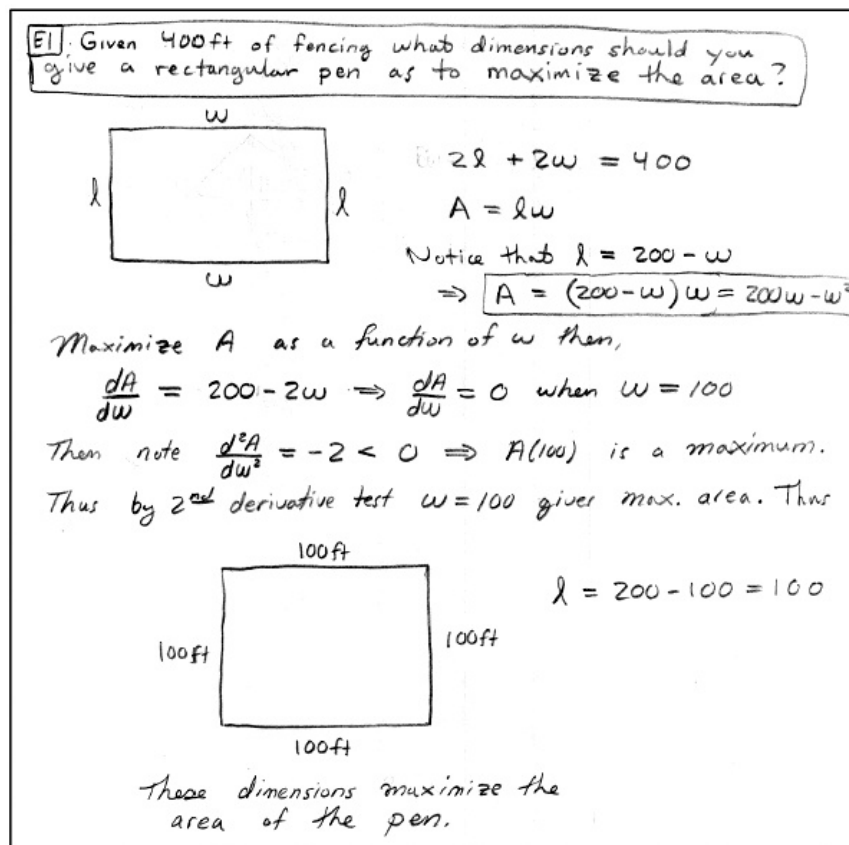 E1. Given 400ft of fencing what dimensions should you
give a rectangular pen as to maximize the area?
w
l
l
w
2l + 2w = 400
A = lw
Notice that l = 200 - w
⇒ A = (200-w)w = 200w - w²
Maximize A as a function of w then,
dA/dw = 200 - 2w ⇒ dA/dw = 0 when w = 100
Then note d²A/dw² = -2 < 0 ⇒ A(100) is a maximum.
Thus by 2nd derivative test w = 100 gives max. area. Thus
100ft
l = 200 - 100 = 100
100ft
100ft
100ft
These dimensions maximize the
area of the pen.